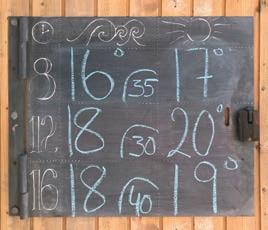 8 16° 35 17°
12 18 30 20°
16 18 40 19°